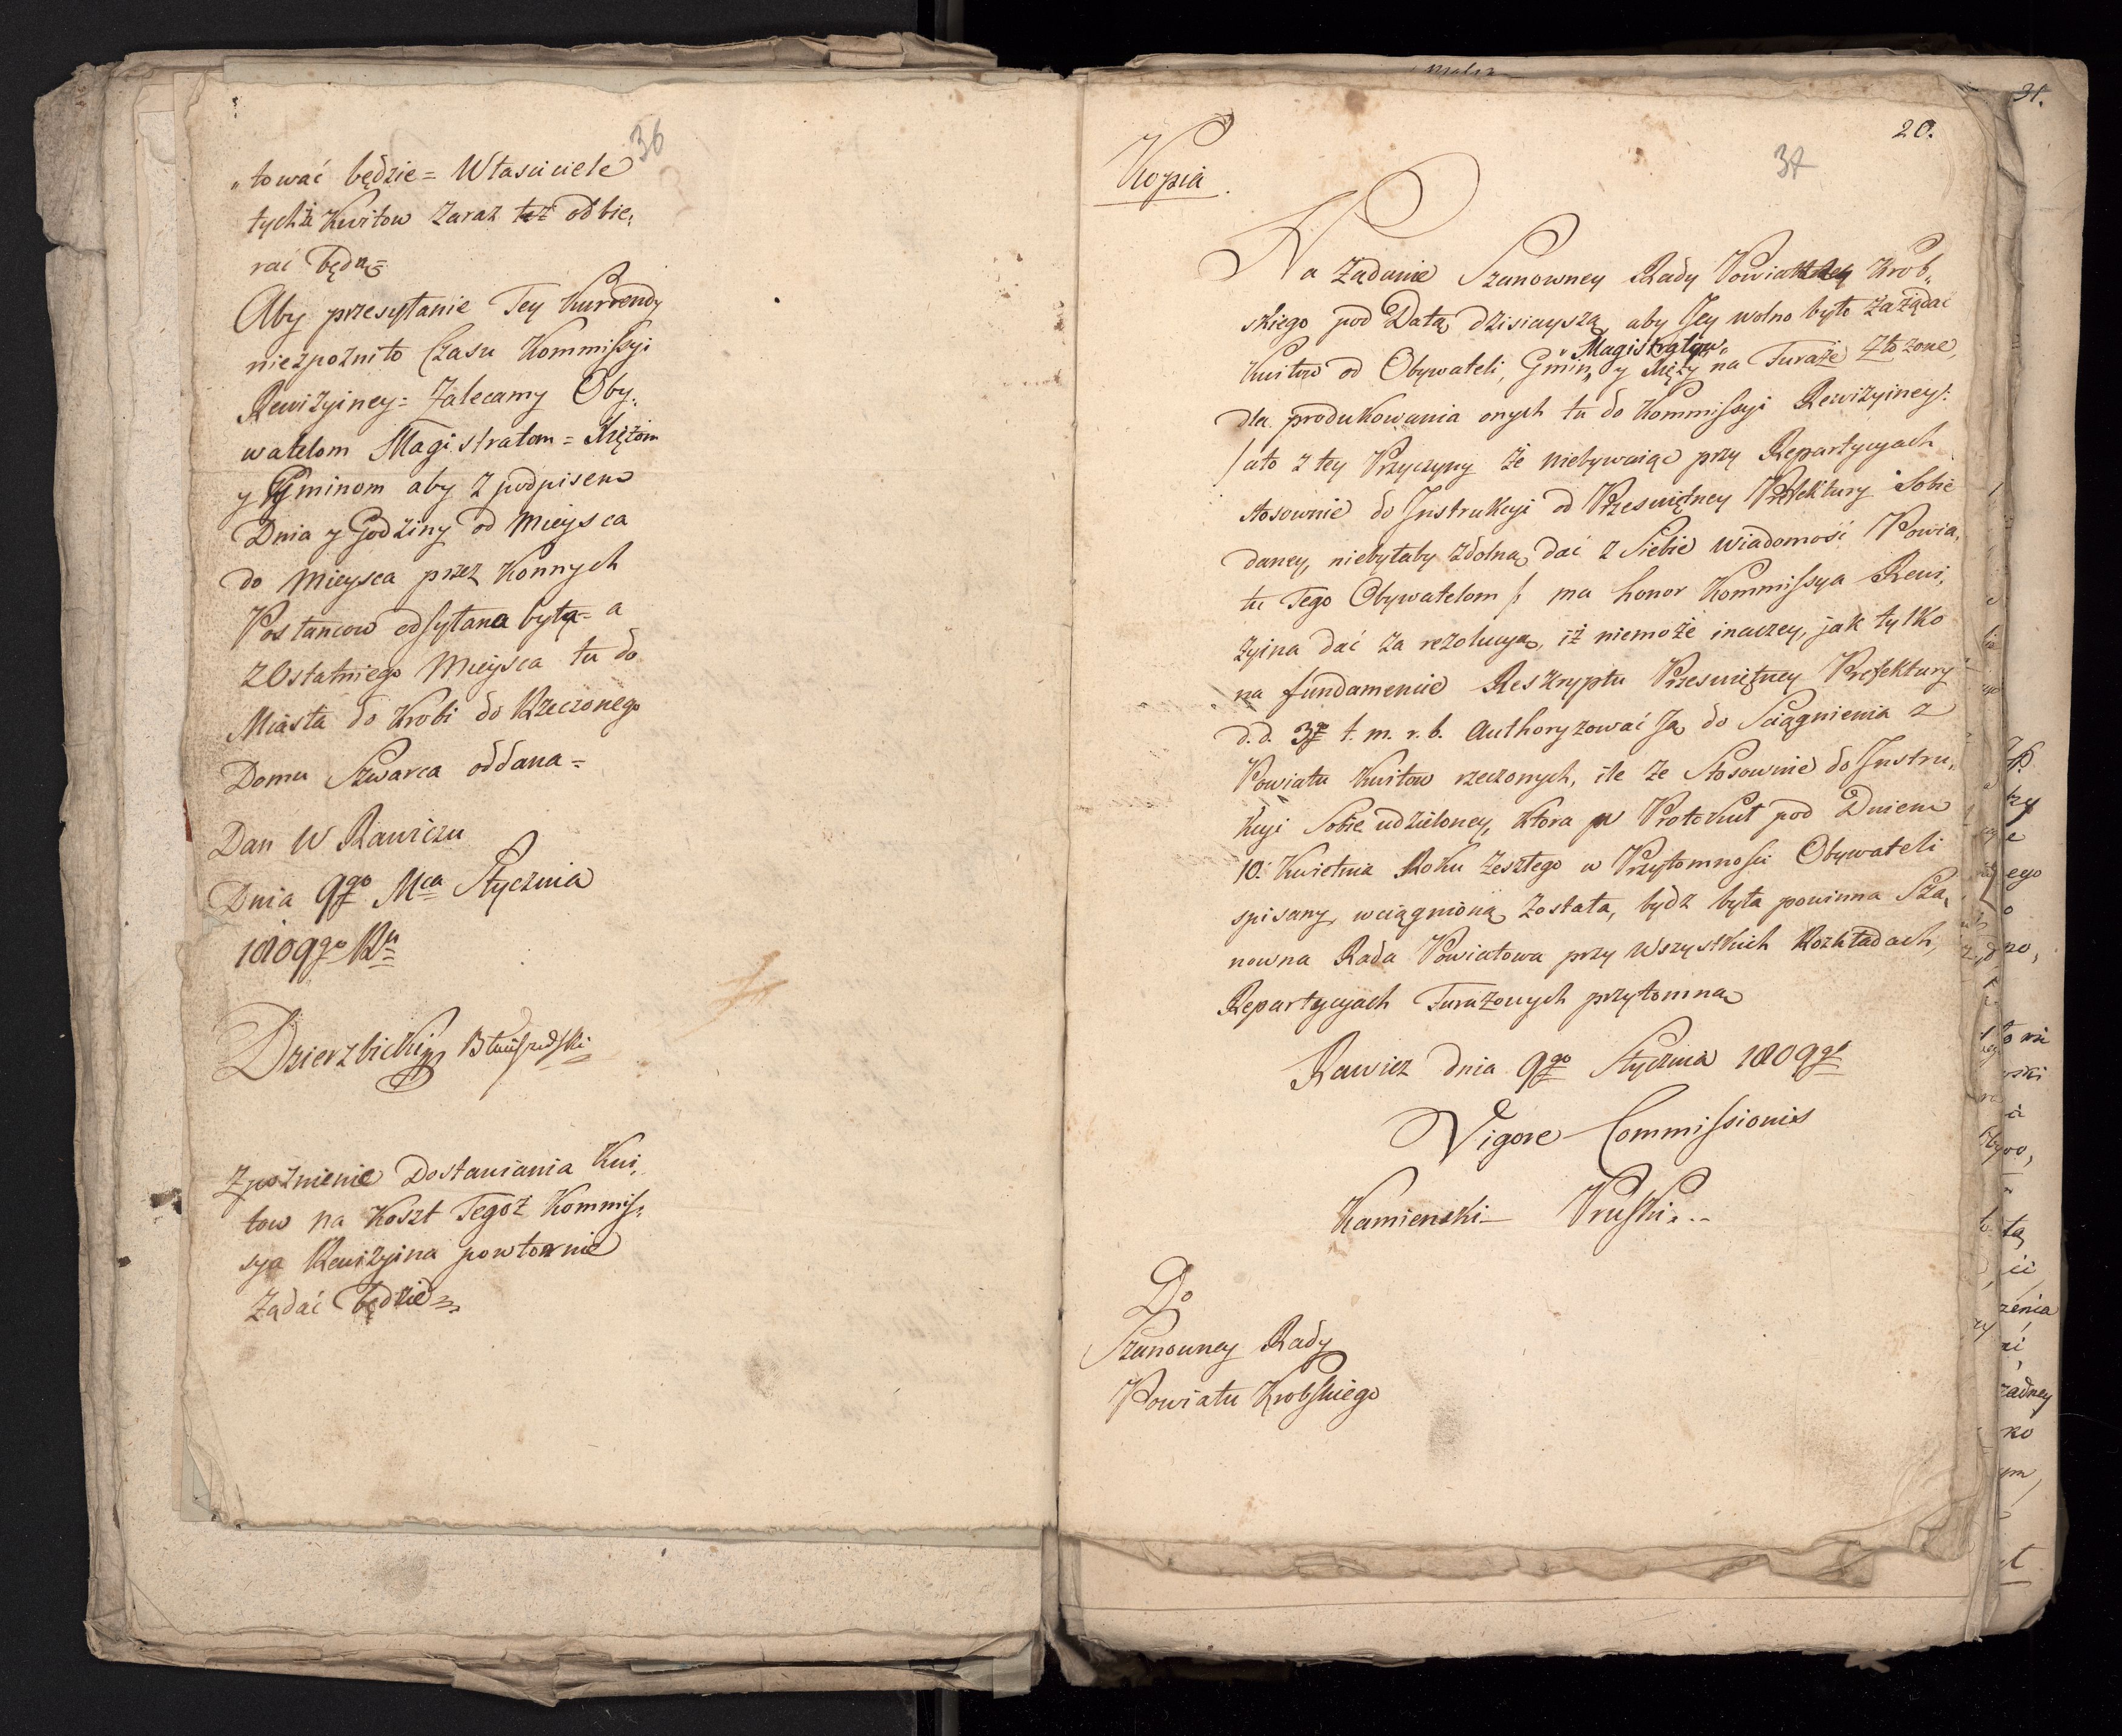 36
„tować będzie = Własciciele
tychże Kwitow zaraz też odbie„
rać będą =
Aby przesyłanie Tey Kurrendy
niezpoźniło Czasu Kommissyi
Rewizyiney = Zalecamy Oby„
watelom Magistratom = Xiężom
y Gminom aby z podpisem
Dnia y Godziny od Mieysca
do Mieysca przez Konnych
Posłancow odsyłana była = a
z Ostatniego Mieysca tu do
Miasta do Krobi do Rzeczonego
Domu Szwarca oddana =
Dan W Rawiczu
Dnia 9go Mca Stycznia
1809go Rn
Dzierzbicki
Zpoźnienie Dostawiania Kwi„
tow na Koszt Tegoż Kommis„
sya Rewizyina powtornie
Żądać będzie =
31.
20.
37
Kopia.
Na Żądanie Szanowney Rady Powiatu Krob„
skiego pod Datą dzisieyszą, aby Jey wolno było zażądać
„Magistratow„
Kwitow od Obywateli, Gmin„ y Xięży na Furaże złożone,
dla produkowania onych tu do Kommissyi Rewizyiney:
/ ato z tey Przyczyny że niebywaiąc przy Repartycyach
stosownie do Instrukcyi od Przeswiętney Prefektury Sobie
daney, niebyłaby zdolną dać z Siebie wiadomość Powia„
tu Tego Obywatelom /: ma honor Kommissya Rewi„
zyina dać za rezolucyą, iż niemoże inaczey, jak tylko
na fundamencie Reskryptu Przeswiętney Prefektury
d. d. 3go t. m. r. b. Authoryzować Ją do Sciągnienia z
Powiatu Kwitow rzeczonych, ile że Stosownie do Instru„
kcyi Sobie udzieloney, ktora w Protokuł pod Dniem
10. Kwietnia Roku Zeszłego w Przytomnosci Obywateli
spisany, wciągnioną została, bydz była powinna Sza„
nowna Rada Powiatowa przy wszystkich Rozkładach,
Repartycyach Furażowych przytomna
Rawicz dnia 9go Stycznia 1809go
Vigore Commissionis
Kamienski – Pruski...
Do
Szanowney Rady
Powiatu Krobskiego